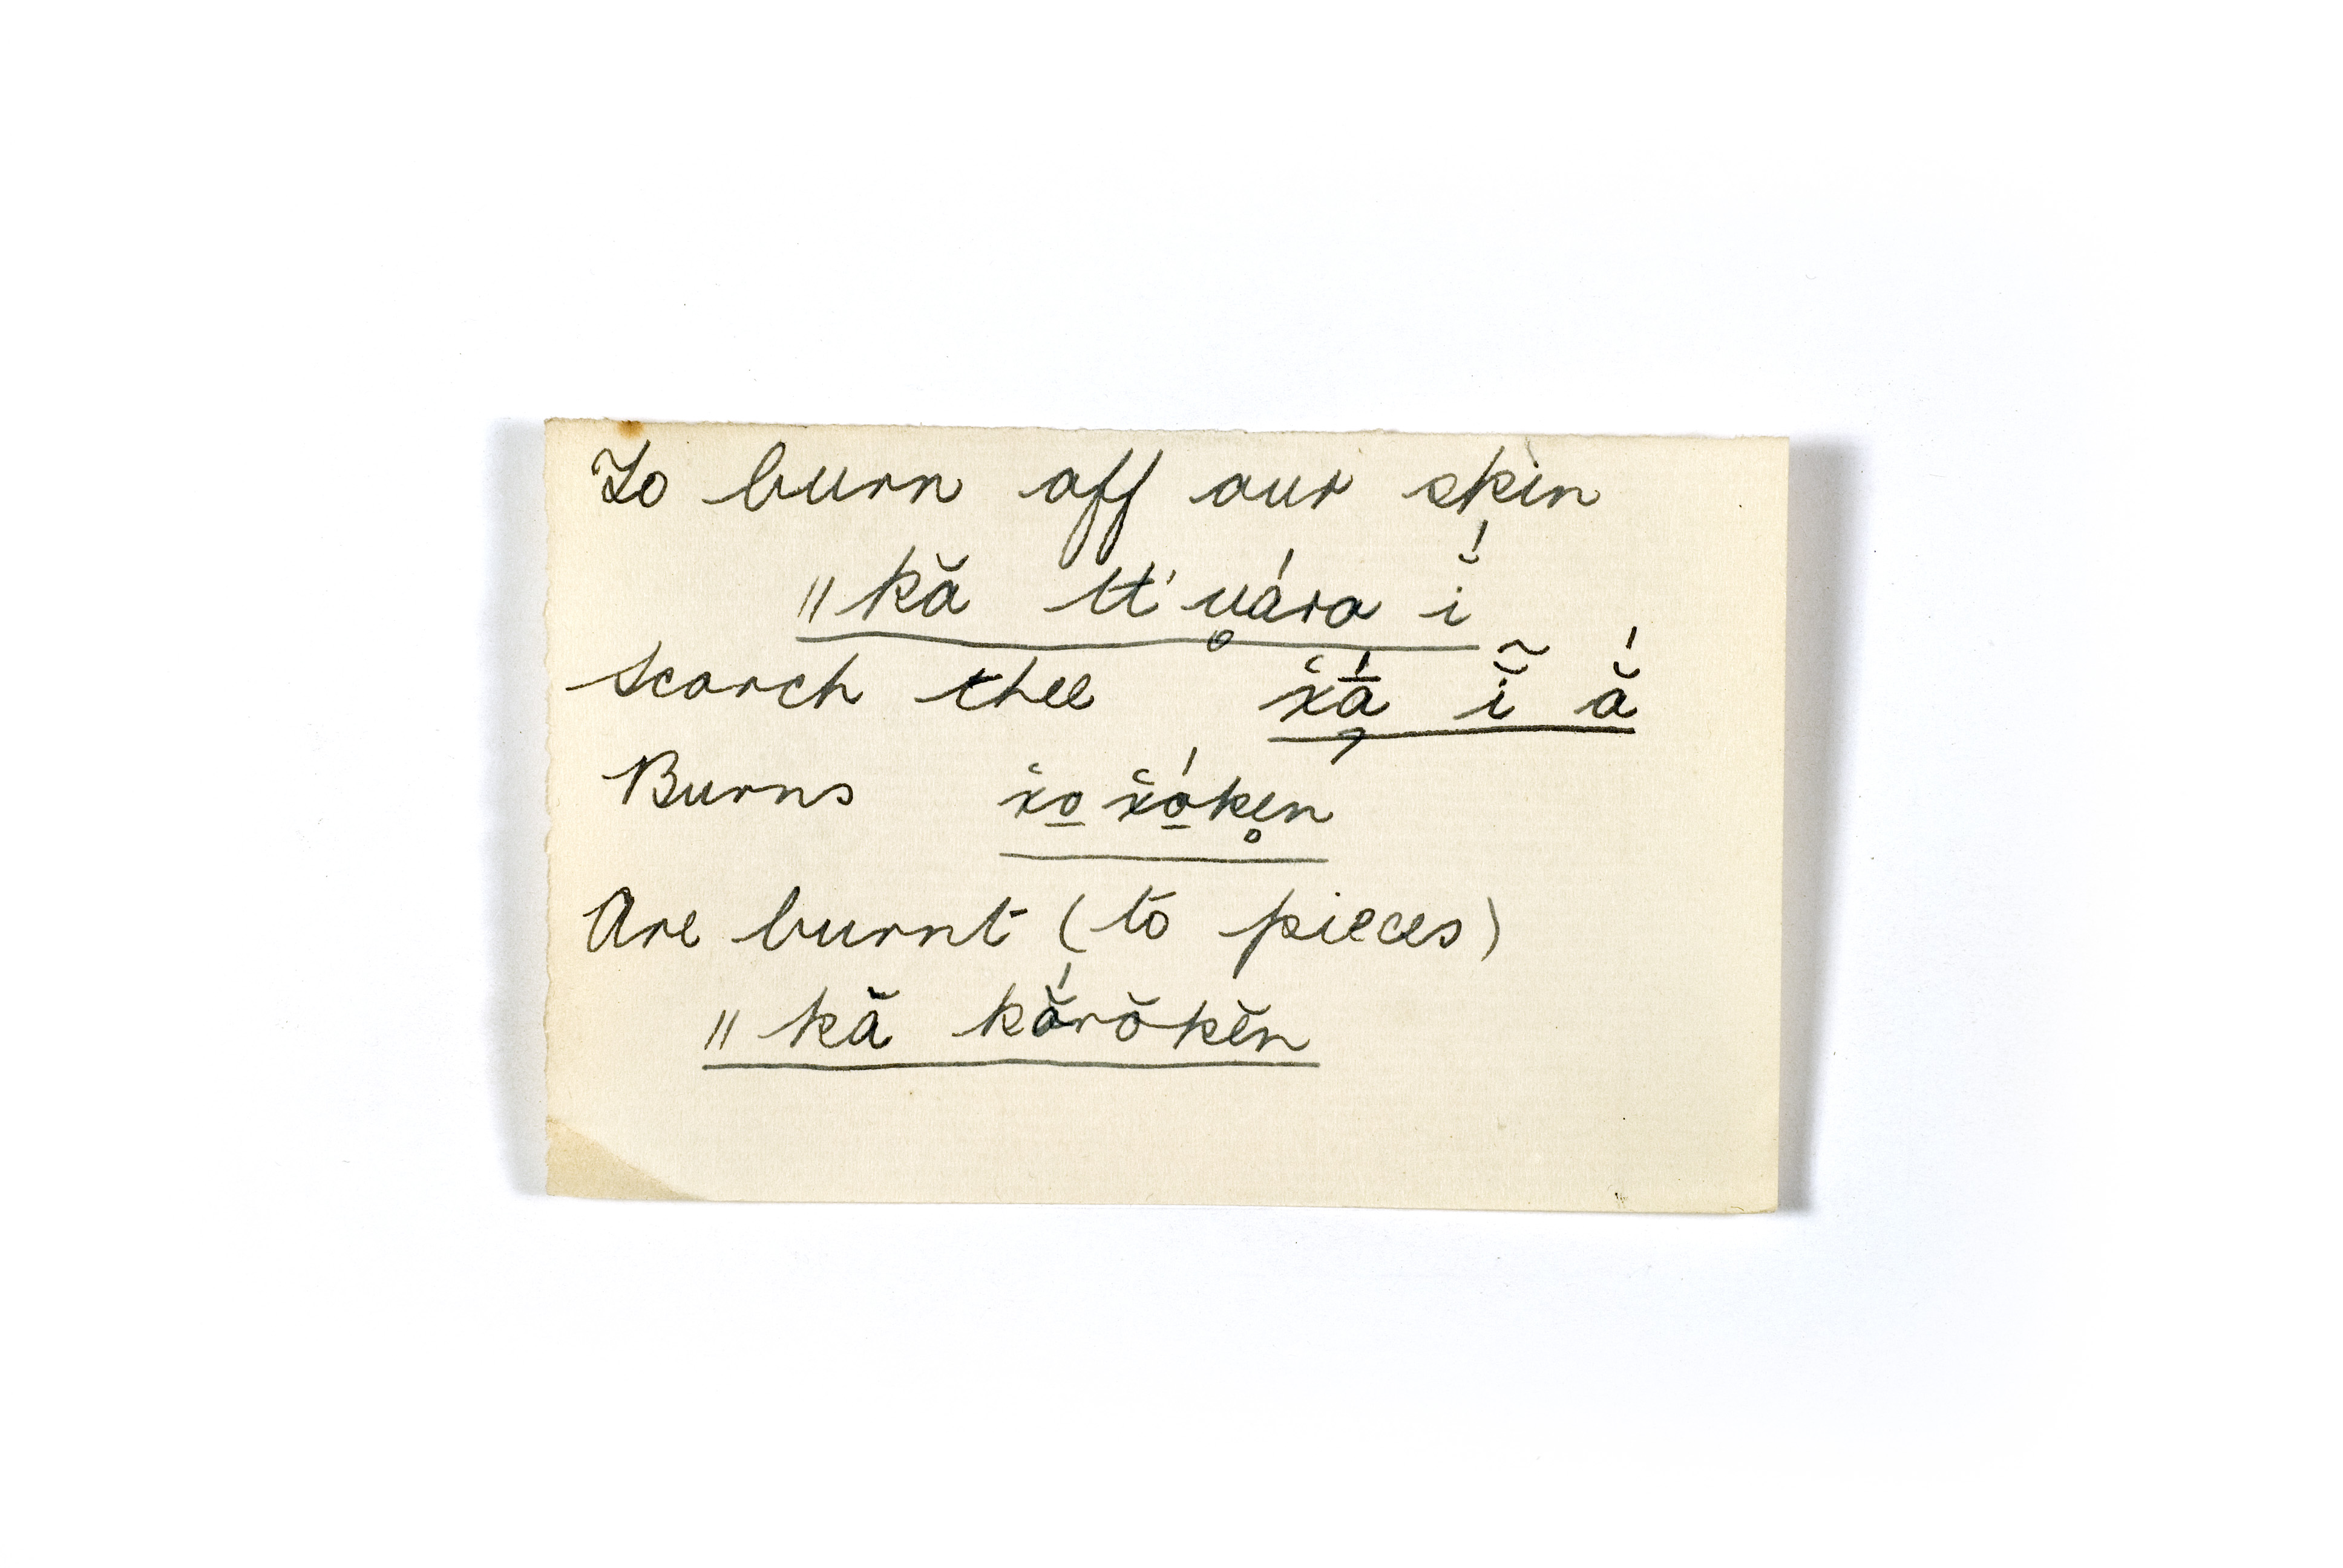 To burn off our skin
ǁkă tt'u̥ára ĭ́
Scorch thee x̆ā̦́ ĭ̃ ắ
Burns x̆o̱ x̆ó̱ke̥n
Are burnt (to pieces)
ǁkă kắrŏkĕn